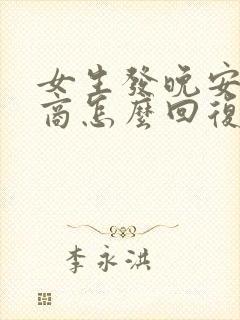 女生發晚安
商怎麼回復
李永洪